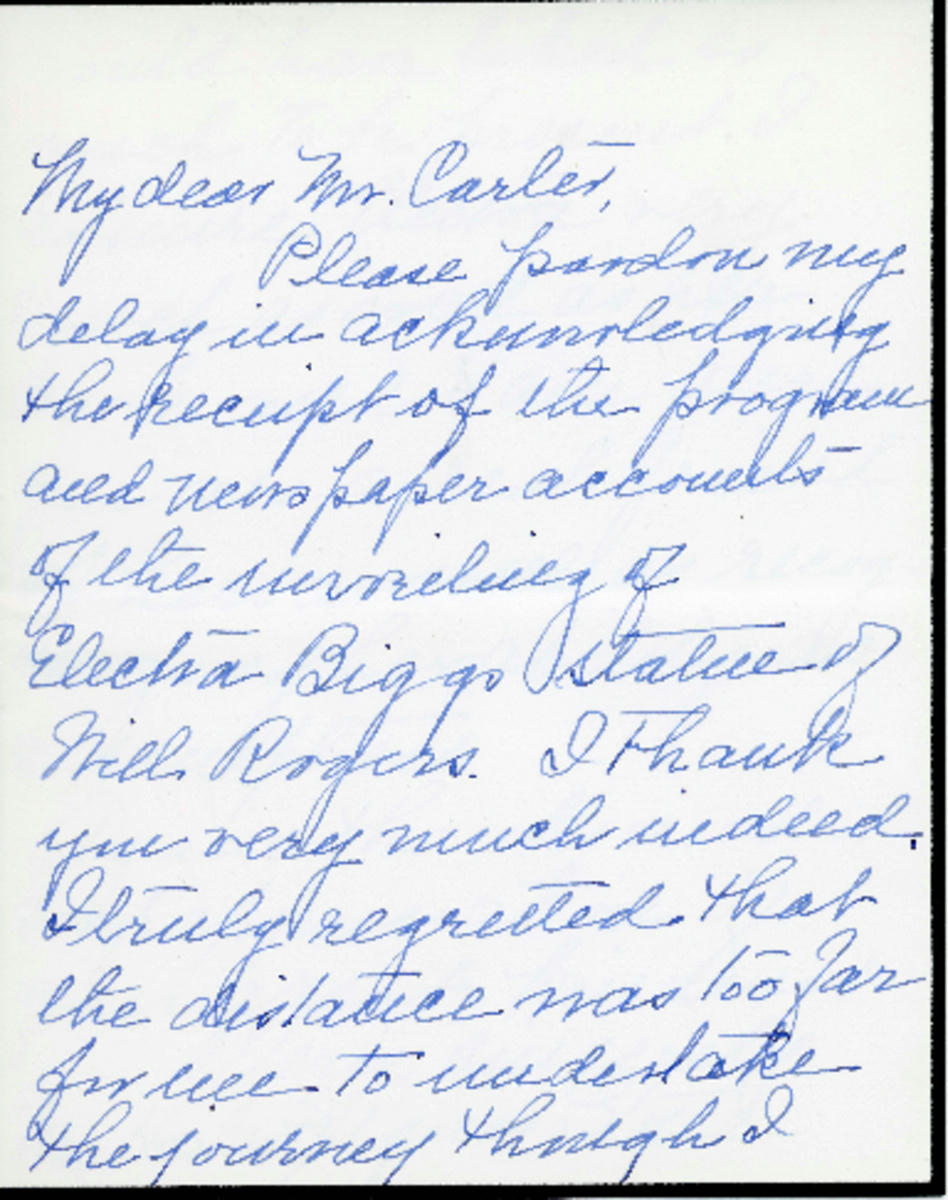 My dear Mr. Carter,
Please pardon my
delay in acknowledging
the receipt of the program
and newspaper accounts
of the unveiling of
Electra Biggs statue of
Will Rogers. I Thank
you very much indeed.
I truly regretted that
the distance was too far
for me to undertake
the journey though I